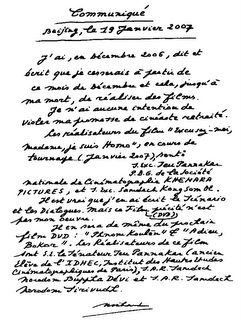 Communiqué
Beijing, le 19 Janvier 2007
J'ai, en Décembre 2006, dit et
écrit que je cesserais à partir de
ce mois de Décembre et cela, jusqu'à
ma mort, de réaliser des films.
Je n'ai aucune intention de
violer ma promesse de cinéaste retraité.
Les réalisateurs du film "Excusez-moi,
madame, je suis Homo", en cours de
tournage (Janvier 2007), sont:
S.Exc. Teu Pannakar
P.D.G. de la Société
nationale de Cinématographie KHEMARA
PICTURES, et S.Exc. Samdech Kong Som Ol.
Il est vrai que j'en ai écrit le Scénario
et les Dialogues. Mais ce Film précité n'est
pas mon oeuvre. (DVD)
Il en sera de même du prochain
film DVD: "Phnom Koulên" et "Adieu,
Bokor". Les Réalisateurs de ce film
sont S.E. le Sénateur Teu Pannakar (ancien
élève de l'IDHEC, Institut des Hautes Etudes
Cinématographiques de Paris), S.A.R. Samdech
Norodom Buppha Dévi et S.A.R. Samdech
Norodom Sirivudh.